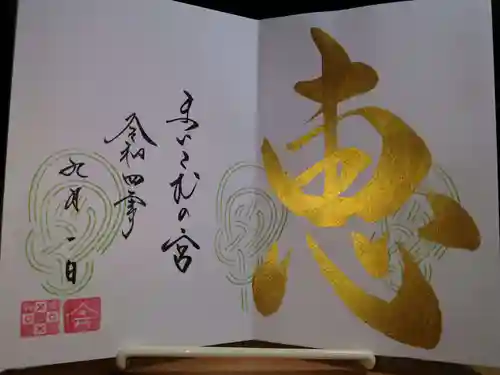 恵
まいこむの宮
令和四年
九月一日